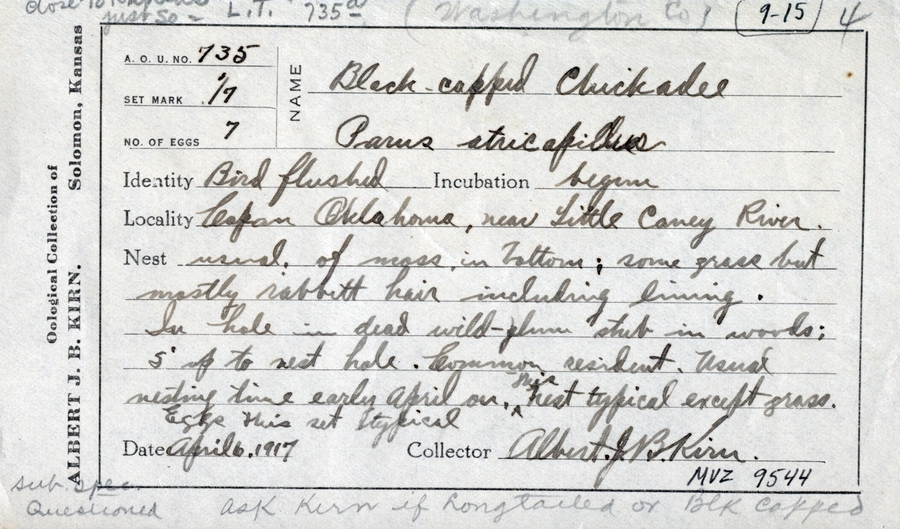 close to
just so = L.T. 735a (Washington Co) 9-15 4
A. O. U. NO. 735
SET MARK 1/7
NO. OF EGGS 7
NAME Black-capped Chickadee
Parus atricapillus
Identity Bird flushed Incubation begun
Locality Copan Oklahoma, near Little Caney River.
Nest usual, of moss, in bottom; some grass but
mostly rabbitt hair including lining.
In hole in dead wild-plum stub in woods;
5' up to nest hole. Common resident. Usual
nesting time early April on. this nest typical except grass.
Eggs this set typical
Date April 6, 1917 Collector Albert J. B. Kirn.
MVZ 9544
sub. spec.
Questioned ask Kirn if Longtailed or Blk capped
Oological Collection of
ALBERT J. B. KIRN. Solomon, Kansas